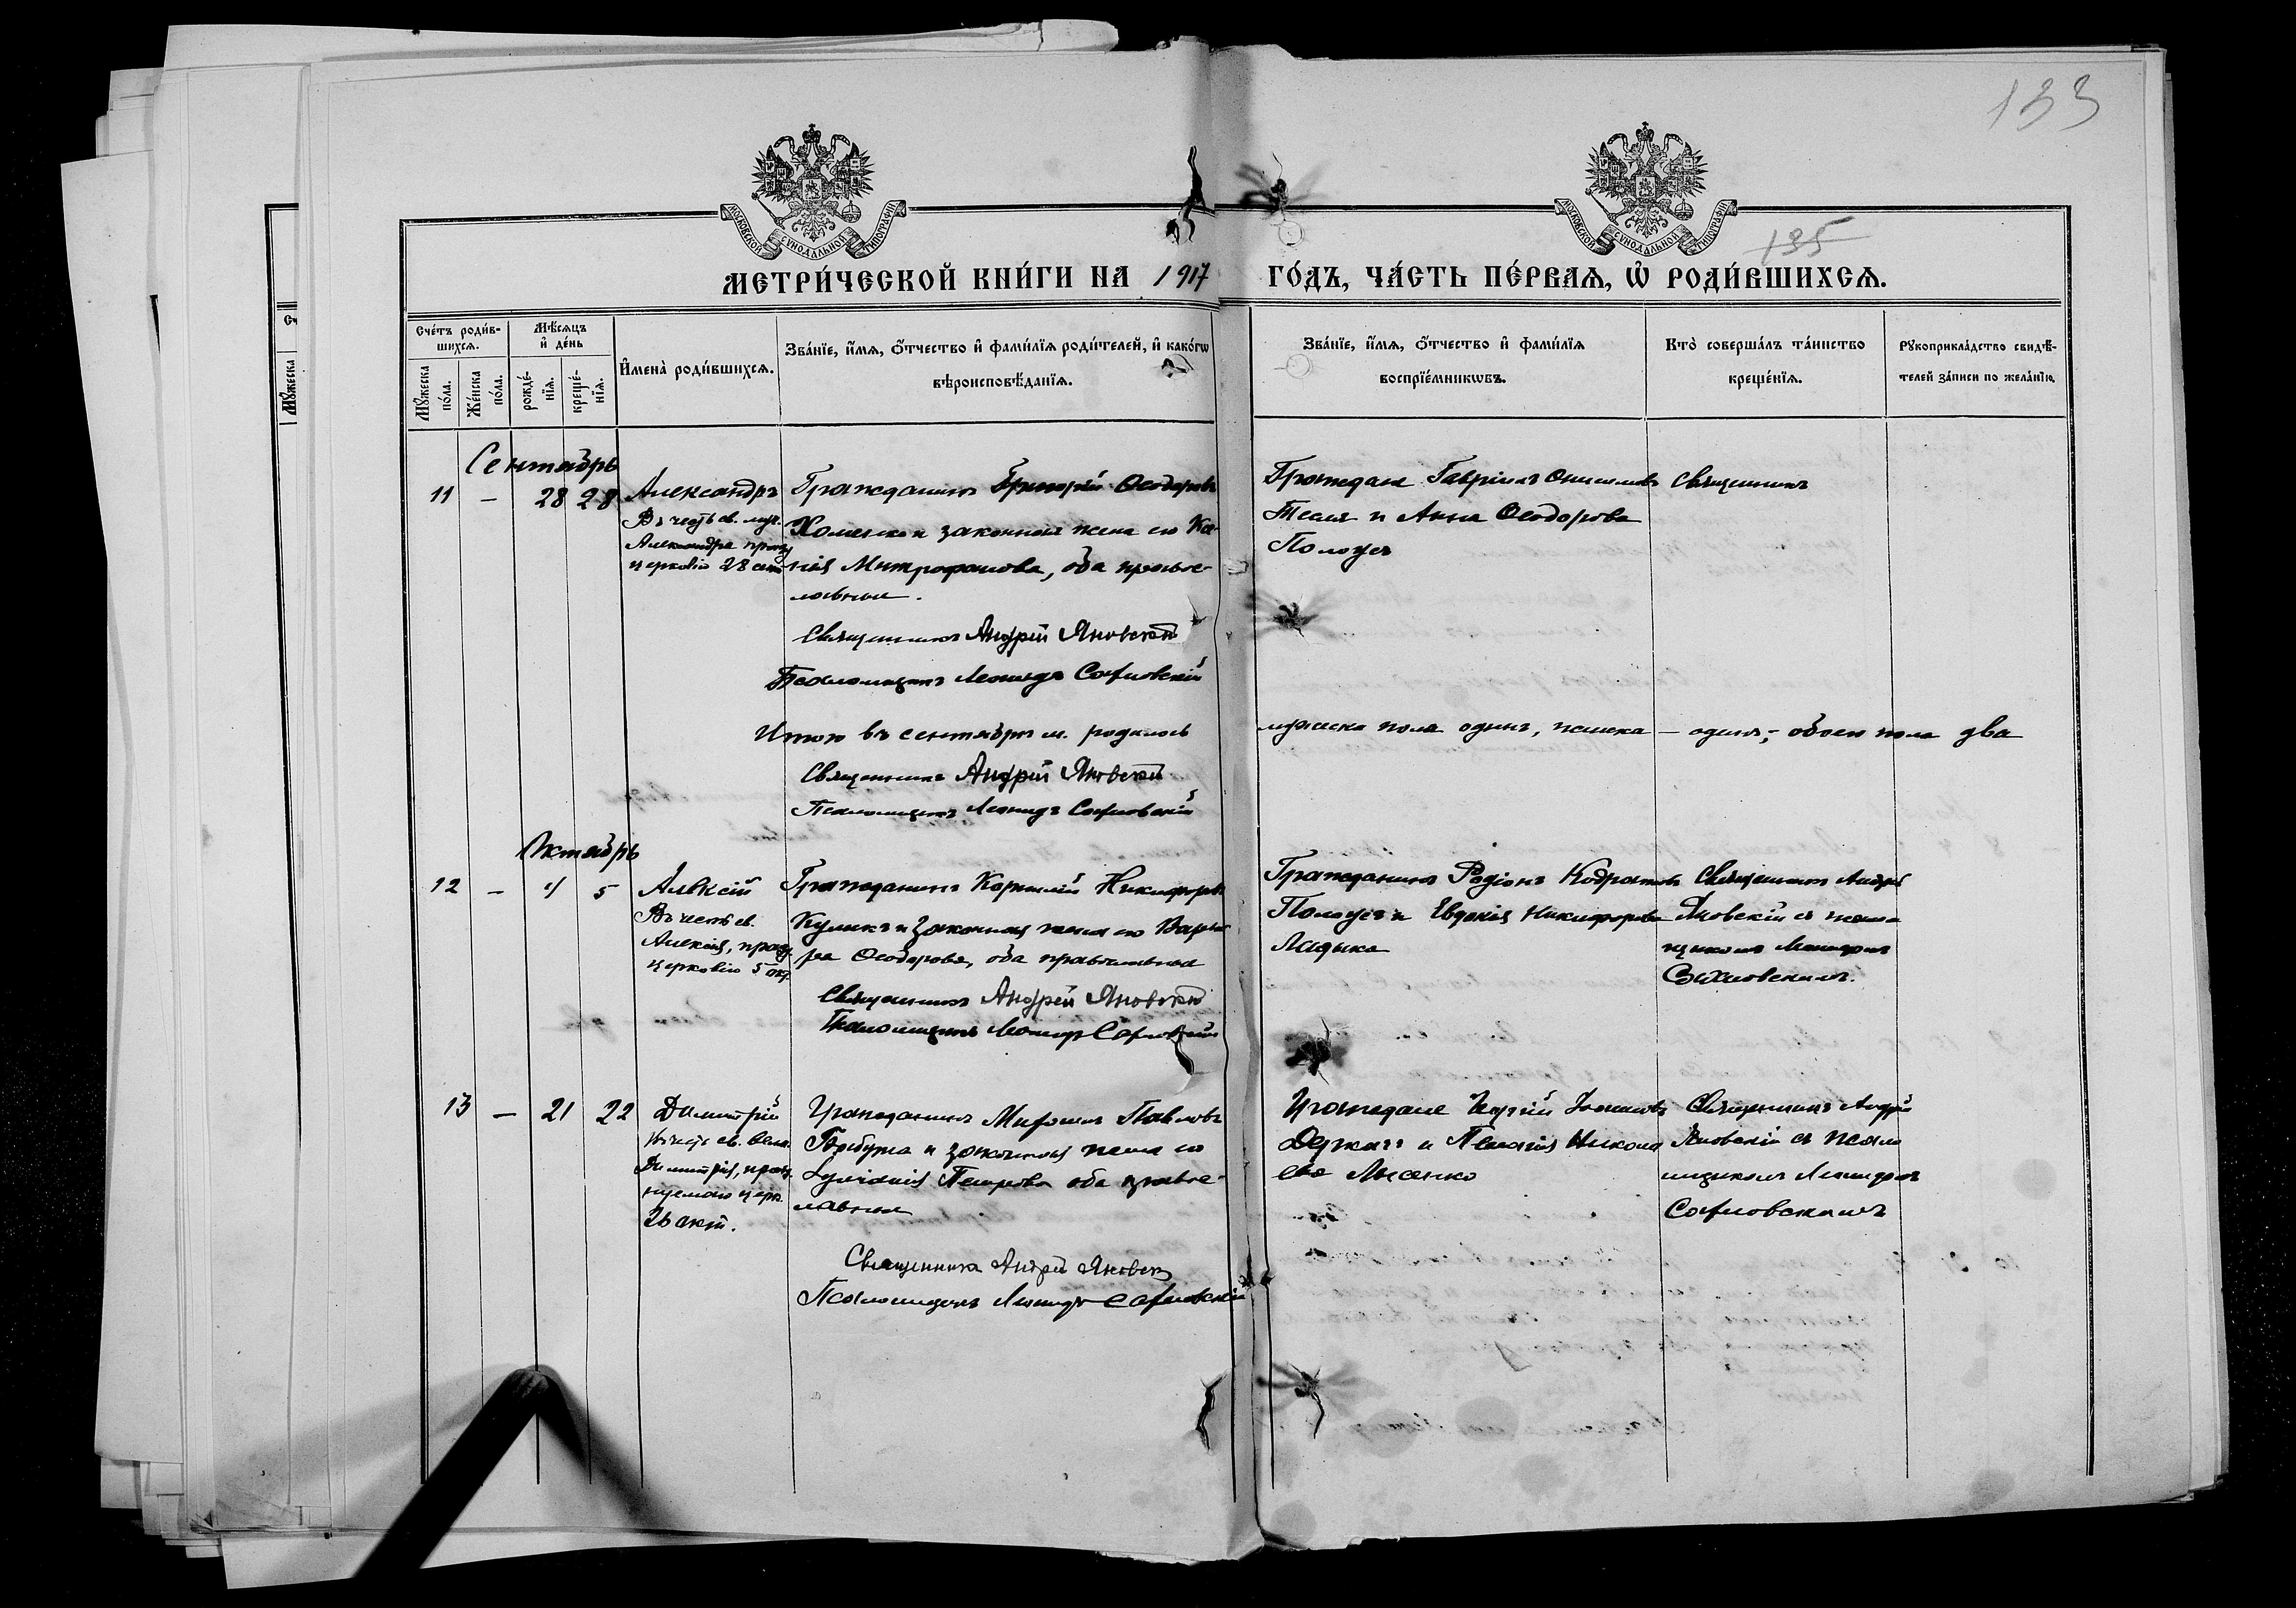 133
135
МОСКОВСКОЙ СѴНОДАЛЬНОЙ ТИПОГРАФІИ
МОСКОВСКОЙ СѴНОДАЛЬНОЙ ТИПОГРАФІИ
МЕТРИ́ЧЕСКОЙ КНИ́ГИ НА 1917 ГО́ДЪ, ЧА́СТЬ ПЕ́РВАѦ, Ѡ҆ РОДИ́ВШИХСѦ.
Сче́тъ роди́в-
шихсѧ.
Мꙋ́жеска
по́ла.
Же́нска
по́ла.
Мѣ́сѧцъ
и҆ де́нь
рожде́-
нїѧ.
креще́-
нїѧ.
И҆мена̀ роди́вшихсѧ.
Зва́нїе, и҆́мѧ, ѻ҆́тчество и҆ фами́лїѧ роди́телей, и҆ како́гѡ
вѣроисповѣ́данїѧ.
Зва́нїе, и҆́мѧ, ѻ҆́тчество и҆ фами́лїѧ
воспрїе́мникѡвъ.
Кто̀ соверша́лъ та́инство
креще́нїѧ.
Рꙋкоприкла́дство свидѣ́-
телей за́писи по жела́нїю.
Мꙋ́жеска
Сентябрь
11 — 28 28
Александръ
Въ честь св. муч.
Александра празд
церковію 28 сент
Гражданинъ Григорій Ѳеодоровъ
и законная жена его Ксе-
нія Митрофанова, оба право-
славные.
Священникъ Андрей Яновскій
Псаломщикъ Леонидъ Софновскій
Граждане Гавріилъ Онисимовъ
Тесля и Анна Ѳеодорова
Полоусъ
Священникъ
Итого въ сентябрѣ м. родилось мужска пола одинъ, женска — одна, обоего пола два
Священникъ Андрей Яновскій
Псаломщикъ Леонидъ Софновскій
Октябрь
12 — 4 5
Алексій
Въ честь св.
Алексія, празд.
церковію 5 окт.
Гражданинъ Корнилій Никифоровъ
Куликъ и законная жена его Варва-
ра Ѳеодорова, оба православные
Священникъ Андрей Яновскій
Псаломщикъ Леонидъ Софновскій
Гражданинъ Родіонъ Кодратовъ
Полоусъ и Евдокія Никифорова
Ладыка
Священникъ Андрей
Яновскій съ псалом
щикомъ Леонидомъ
13 — 21 22
Димитрій
въ честь св. Велик.
Димитрія, празд-
нуемаго церк.
26 окт.
Гражданинъ Миронъ Павловъ
и законная жена его
Петрова оба право-
славные
Священникъ Андрей Яновскій
Псаломщикъ Леонидъ Софновскій
Граждане Георгій
Держачъ и Пелагія Никола
ева Лысенко
Священникъ Андрей
Яновскій съ псалом
щикомъ Леонидомъ
Софновскимъ